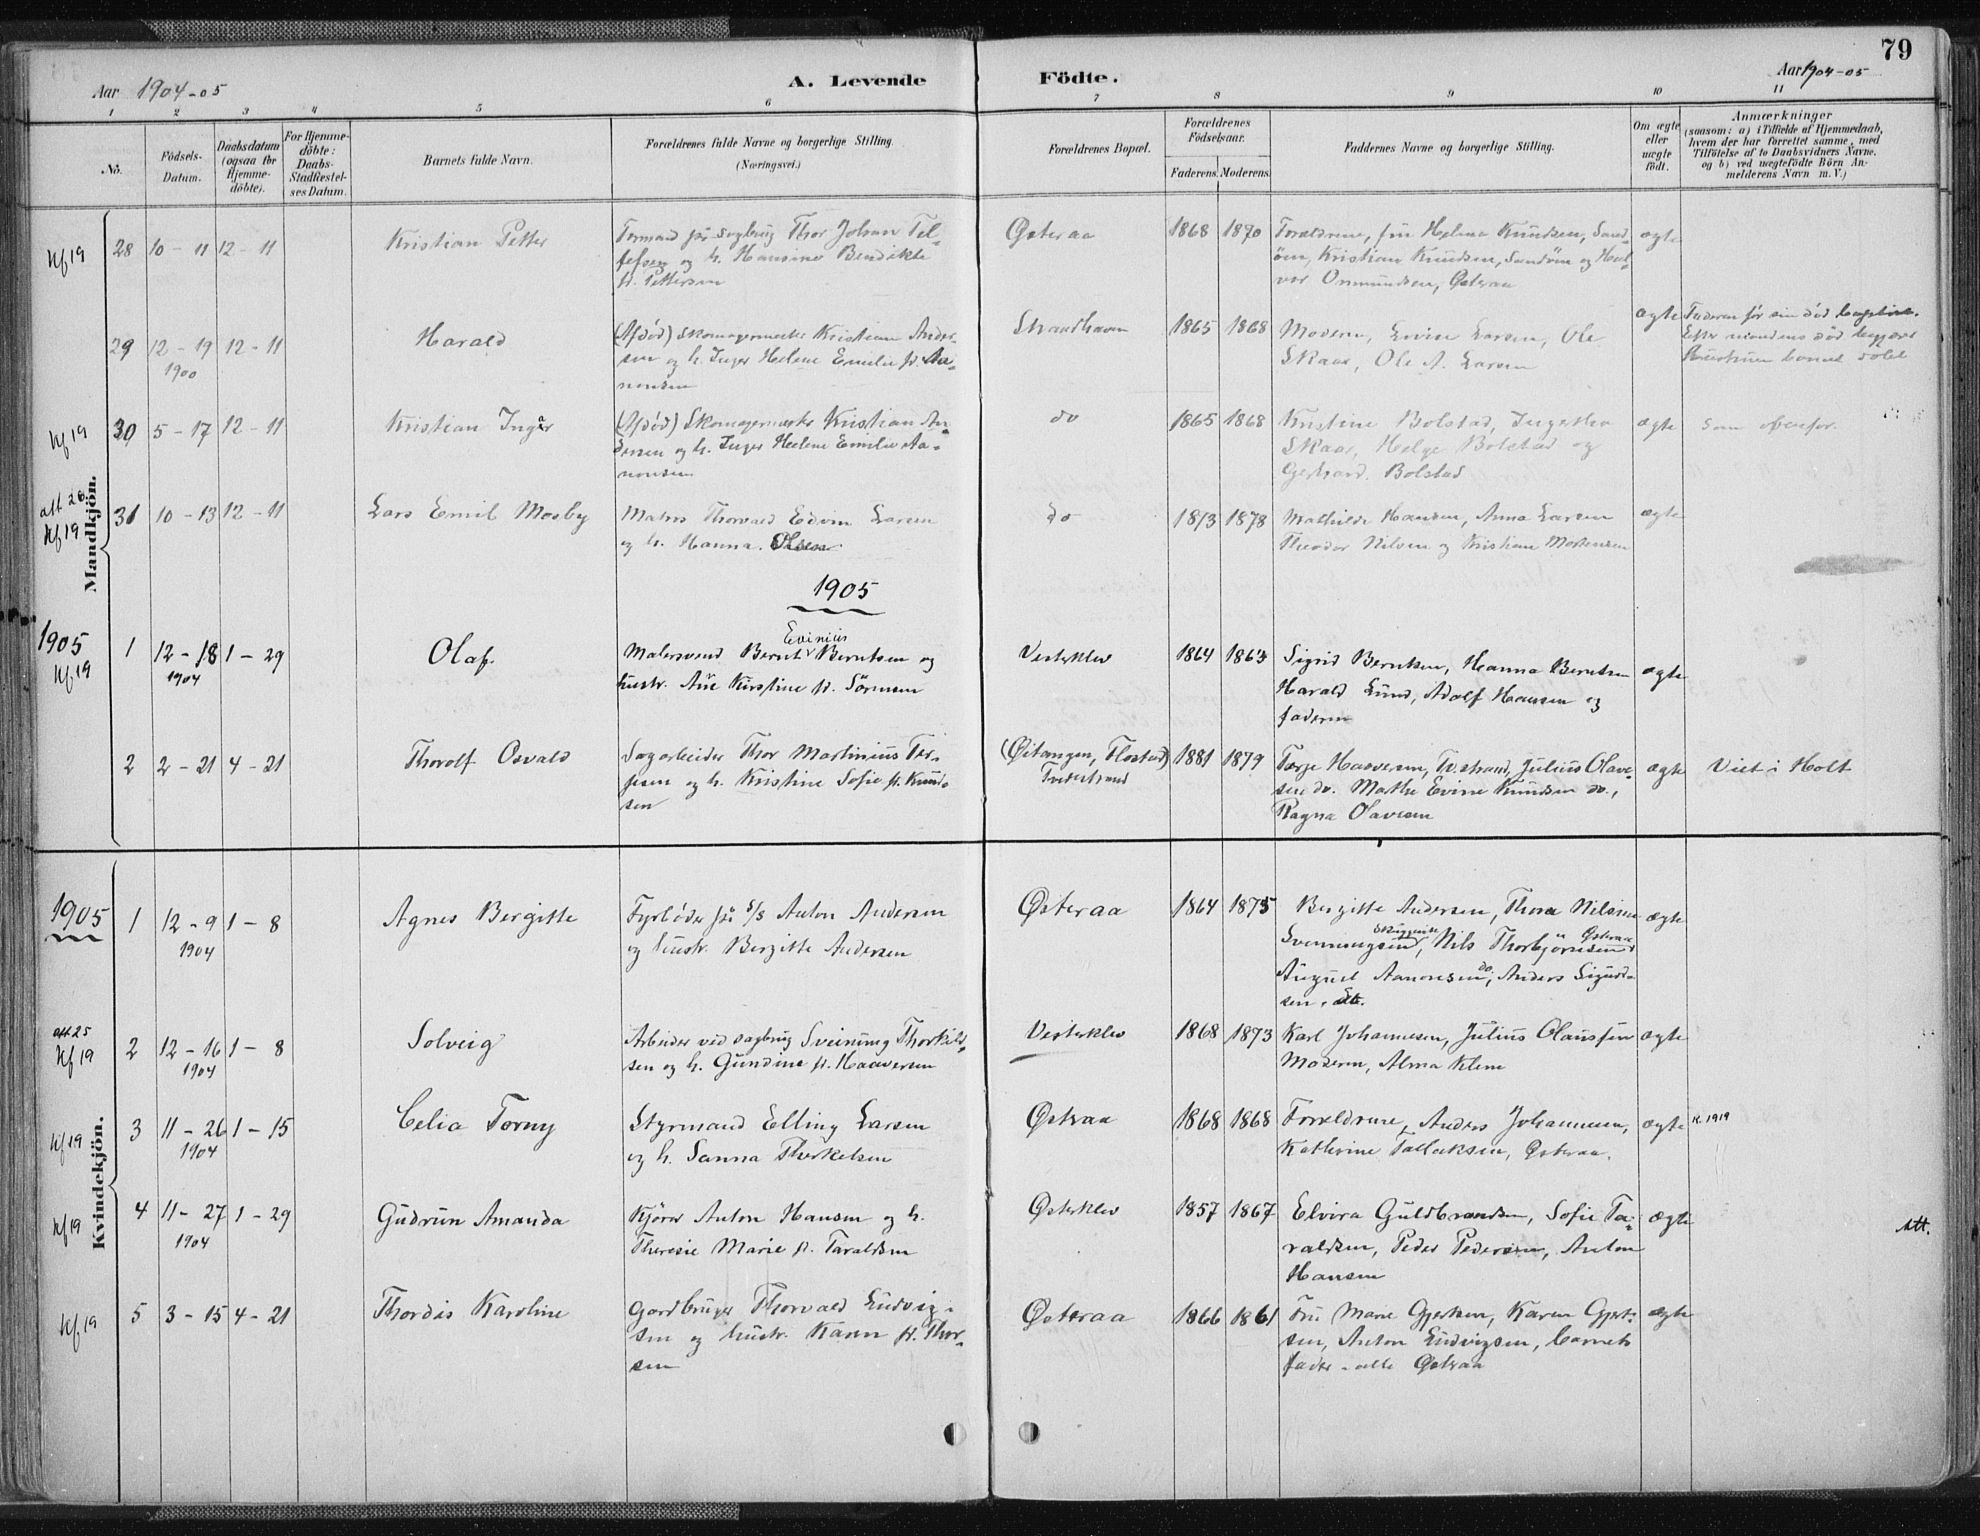 79
Aar 1904-05
A. Levende Födte.
Aar 1904-05
1 2 3 4 5 6 7 8 9 10 11
No.
Födsels-Datum.
Daabsdatum (ogsaa for Hjemme-döbte).
For Hjemme-döbte: Daabs-Stadfæstel-ses Datum.
Barnets fulde Navn.
Forældrenes fulde Navne og borgerlige Stilling.
(Næringsvei.)
Forældrenes Bopæl.
Forældrenes Födselsaar.
Faderens. Moderens.
Faddernes Navne og borgerlige Stilling.
Om ægte eller uægte födt.
Anmærkninger
(saasom: a) i Tilfælde af Hjemmedaab,
hvem der har forrettet samme, med
Tilföielse af to Daabsvidners Navne.
og b) ved uægtefödte Börn An-
melderens Navn m. V.)
Mandkjön.
Kf 19 28 10 - 11 12 - 11 Kristian Petter
Formand på Sagbrug Thor Johan Tel-
lefsen og h. Hansine Bendikte
f. Pettersen
Østeraa 1868 1870
Forældrene, fru Helma Knudsen, Sand-
öen, Kristian Knudsen, Sandöen og Hal-
vor Onmundsen, Østeraa
ægte
29 12 - 19 12 - 11 Harald
1900
(Afdød) Skomagermester Kristian Ander-
sen og h. Inger Helene Emilie f. Aa-
nonsen
Strandhaven 1865 1868
Moderen, Lovise Larsen, Ole
Skaar, Ole A. Larsen
ægte
Faderen før sin død baptist.
Efter mandens død begjærer
hustruen barnet döbt
Kf 19 30 5 - 17 12 - 11 Kristian Inger
(Afdød) Skomagermester Kristian An-
dersen og h. Inger Helene Emilie Aa-
nonsen
do 1865 1868
Kristine Bolstad, Ingertha
Skaar, Helge Bolstad og
Gerhard Bolstad
ægte som ovenfor.
att 28.
Kf 19 31 10 - 13 12 - 11 Lars Emil Mosby
Matros Thorvald Edvin Larsen
og h. Hanna Olsen
do 1873 1878
Mathilde Hansen, Anna Larsen
Theodor Nilsen og Kristian Mortensen
ægte
1905
1905
Kf 19 1 12 - 18 1 - 29 Olaf.
1904
Evinius
Malersvend Bernt Berntsen og
hustr. Ane Kirstine f. Sörensen
Vesterklev 1864 1863
Sigrid Berntsen, Hanna Berntsen
Harald Lund, Adolf Hansen og
faderen
ægte
2 2 - 21 4 - 21 Thorolf Osvald
Sagarbeider Thor Martinius Ter-
jesen og h. Kristine Sofie f. Knud-
sen
(Øitangen, Flostad)
Tvedestrand
1881 1879
Terje Haaversen, Tv.strand, Julius Olave-
sen do. Marthe Evine Knudsen do.,
Ragna Olavesen
ægte Viet i Holt
Kvindekjön.
1905 1 12 - 9 1 - 8 Agnes Bergitte
1904
Fyrböder på S/S Anton Andersen
og hustr. Bergitte Andersen
Østeraa 1864 1875
Bergitte Andersen, Thora Nilsine
Svenningsen, Nils Thorbjörnsen Østeraa
August Aanonsen do, Anders Sigurd-
sen, do.
ægte
att 25
Kf 19 2 12 - 16 1 - 8 Solveig
1904
Arbeider ved sagbrug Sveinung Thorkild-
sen og h. Gundine f. Haaversen
Vesterklev 1868 1873
Karl Johannesen, Julius Olaussen
Moderen, Alma Klem
ægte
Kf 19 3 11 - 26 1 - 15 Celia Torny
1904
Styrmand Elling Larsen
og h. Sanna Therkelsen
Østeraa 1868 1868
Forældrene, Anders Johannesen,
Kathrine Tallaksen, Østeraa.
ægte K. 1919
Kf 19 4 11 - 27 1 - 29 Gudrun Amanda
1904
Kjörer Anton Hansen og h.
Theresie Marie f. Taraldsen
Østerklev 1857 1867
Elvira Guldbrandsen, Sofie Ta-
raldsen, Peder Pedersen, Anton
Hansen
ægte att.
Kf 19 5 3 - 15 4 - 21 Thordis Karoline
Gardbruger Thorvald Ludvig-
sen og hustr. Karen f. Thor-
sen
Østeraa 1866 1861
Fru Marie Gjertsen, Karen Gjert-
sen, Anton Ludvigsen, barnets
fader - alle Østeraa
ægte